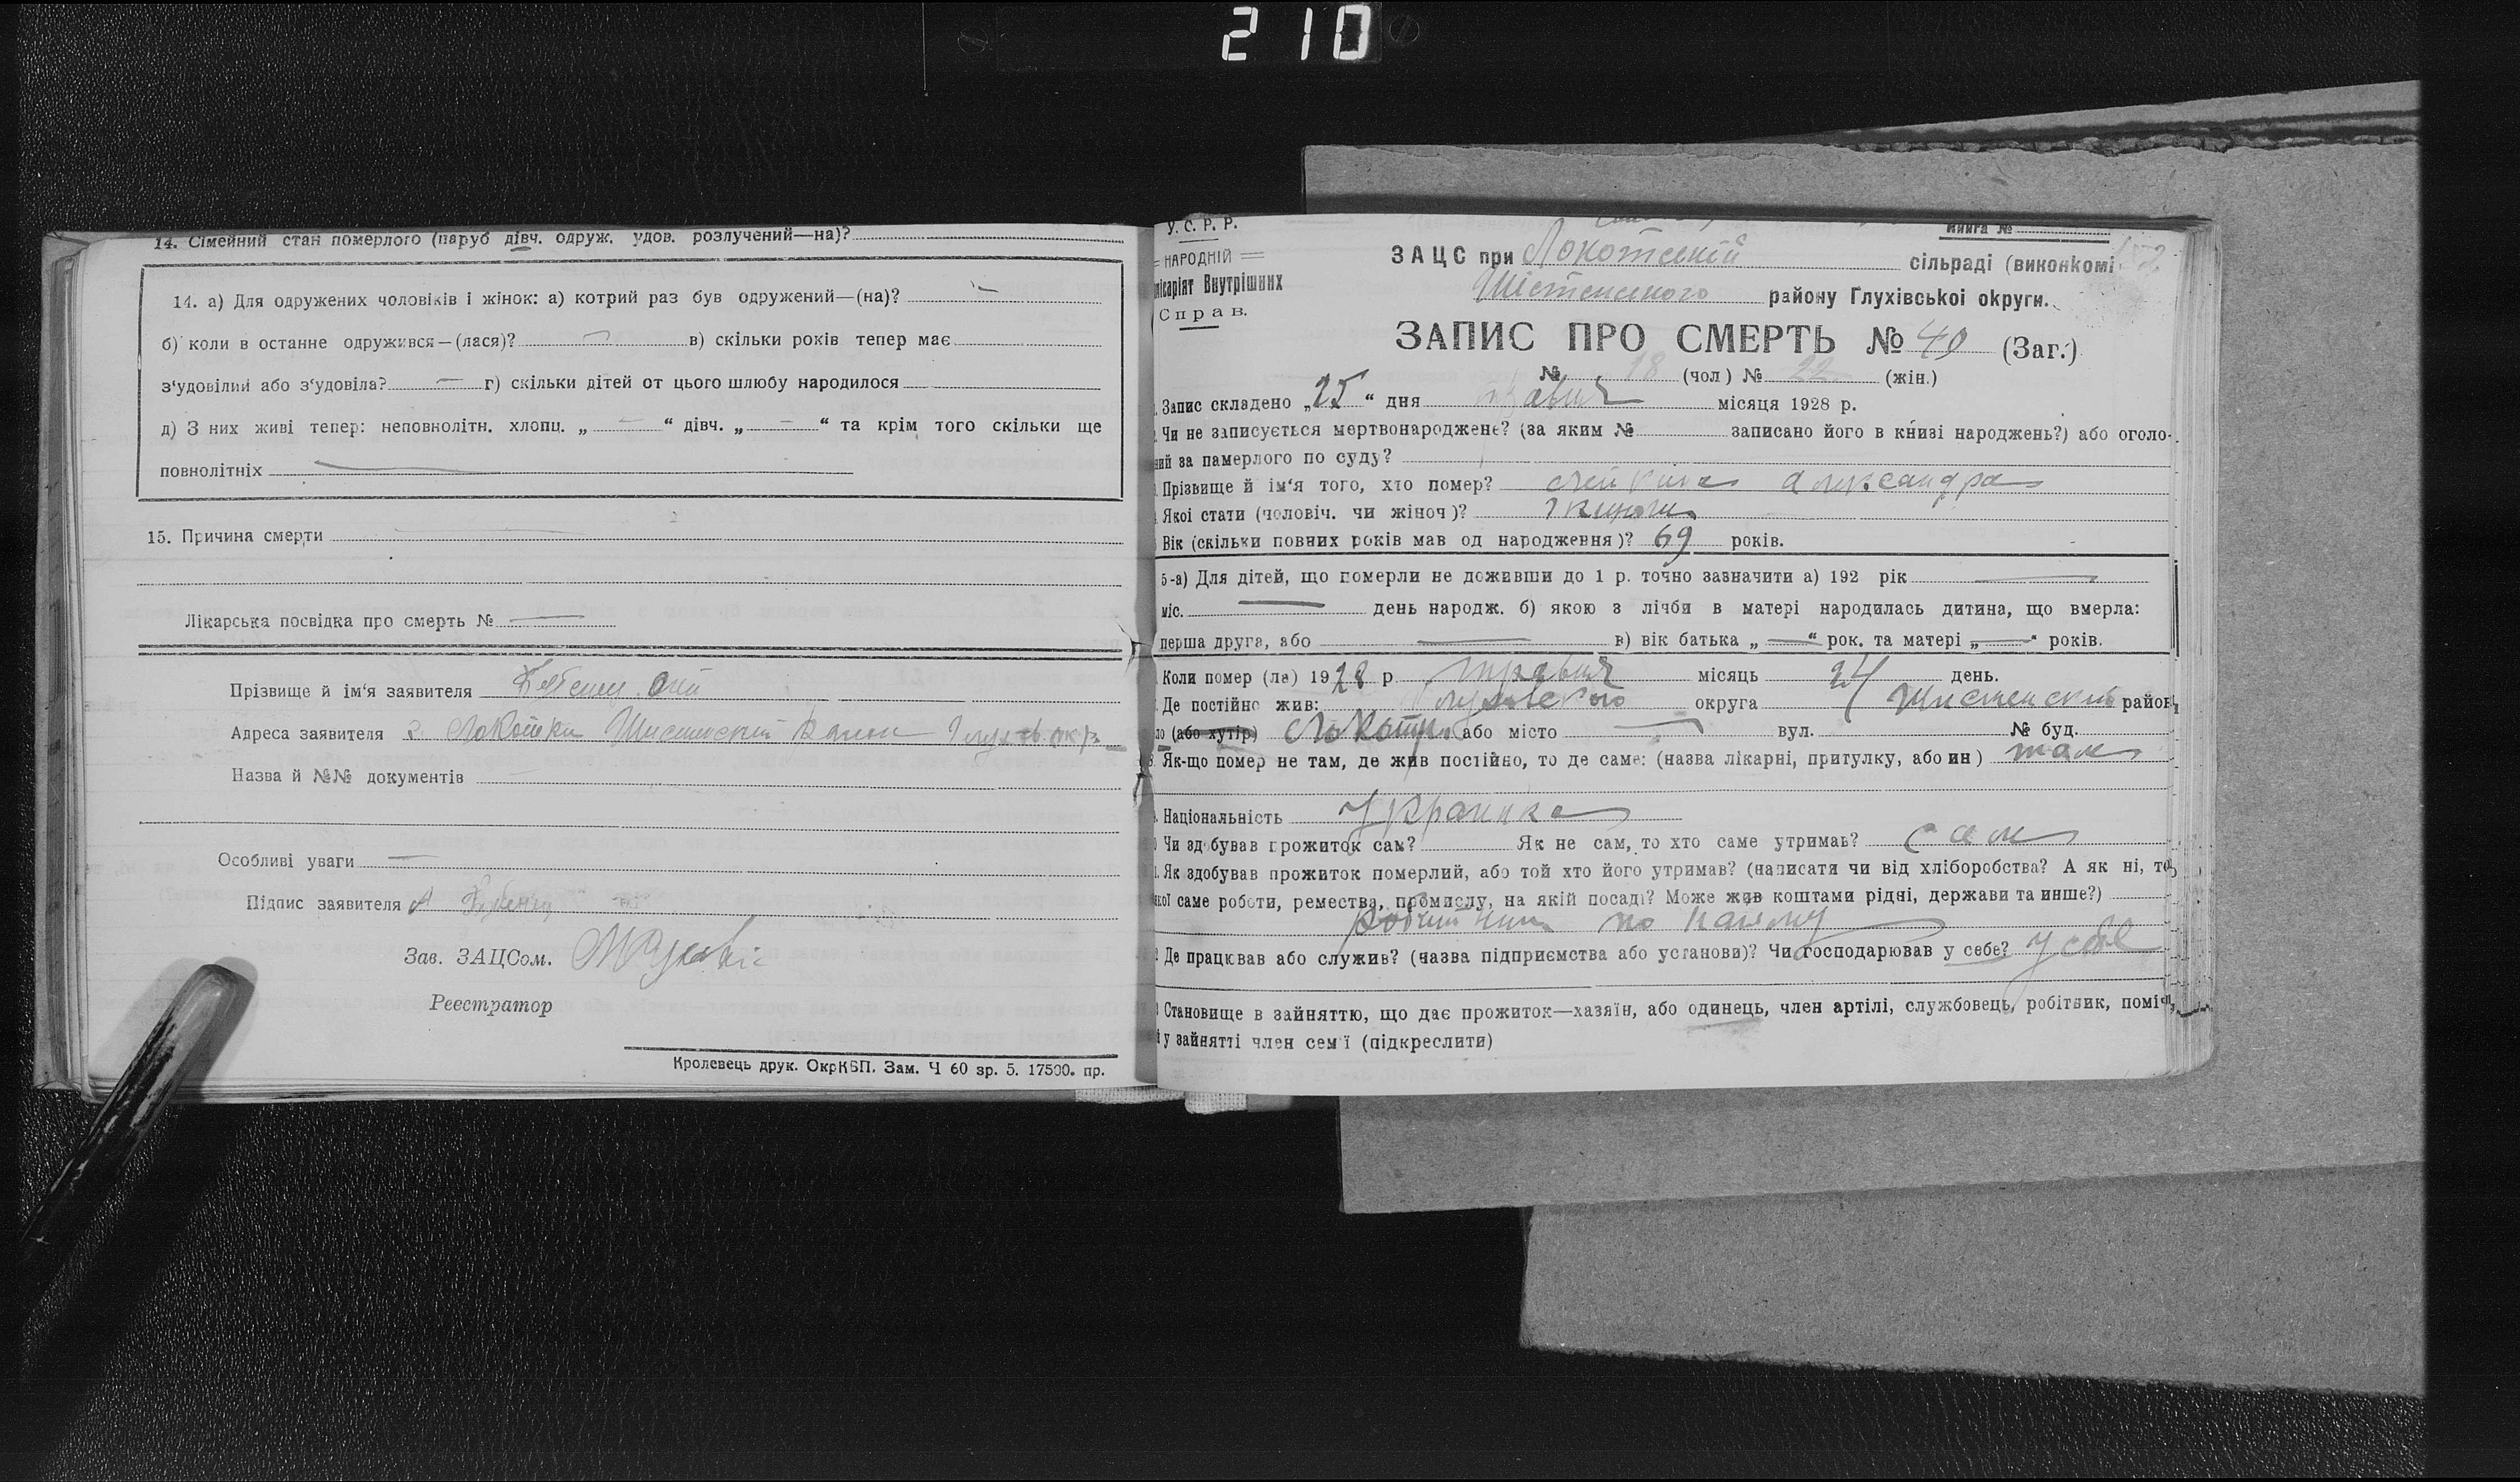 210
14. Сімейний стан померлого (паруб дівч. одруж. удов. розлучений—на)?
14. а) Для одружених чоловіків і жінок: а) котрий раз був одружений—(на)? —
б) коли в останне одружився—(лася)? — в) скільки років тепер має
з'удовілий або з'удовіла? — г) скільки дітей от цього шлюбу народилося
д) З них живі тепер: неповнолітн. хлопц. „ — “ дівч. „ — “ та крім того скільки ще
повнолітніх —
15. Причина смерти —
Лікарська посвідка про смерть № —
Прізвище й ім'я заявителя
Адреса заявителя Локотки Шистенский
Назва й №№ документів
Особливі уваги —
Підпис заявителя
Зав. ЗАЦСом.
Реєстратор
Кролевець друк. ОкрКВП. Зам. Ч 60 зр. 5. 17500. пр.
У. С. Р. Р.
НАРОДНІЙ
місаріят Внутрішних
Справ.
Книга №
ЗАЦС при Локотській сільраді (виконкомі
Шістенського району Глухівської округи.
ЗАПИС ПРО СМЕРТЬ № 40 (Заг.)
№ 18 (чол) № 22 (жін.)
Запис складено „25“ дня травня місяця 1928 р.
Чи не записується мертвонароджене? (за яким № записано його в книзі народжень?) або оголо-
ний за памерлого по суду?
Прізвище й ім'я того, хто помер? Александра
Якої стати (чоловіч. чи жіноч)?
Вік (скільки повних років мав од народження)? 69 років.
5-а) Для дітей, що померли не доживши до 1 р. точно зазначити а) 192 рік —
міс. — день народж. б) якою з лічби в матері народилась дитина, що вмерла:
перша друга, або — в) вік батька „—“ рок. та матері „—“ років.
Коли помер (ла) 1928 р травня місяць 24 день.
Де постійно жив: Глухівского округа Шистенский район,
ло (або хутір) або місто — вул. № буд.
Як-що помер не там, де жив постійно, то де саме: (назва лікарні, притулку, або ин) там
Національність Украинка
Чи здобував прожиток сам? Як не сам, то хто саме утримав? сам
Як здобував прожиток померлий, або той хто його утримав? (написати чи від хліборобства? А як ні, то
якої саме роботи, ремества, промислу, на якій посаді? Може жив коштами рідні, держави та инше?)
по найму
Де працював або служив? (назва підприємства або установи)? Чи господарював у себе? у себе
Становище в зайняттю, що дає прожиток—хазяїн, або одинець, член артілі, службовець, робітник, поміч
й у зайнятті член сем'ї (підкреслити)